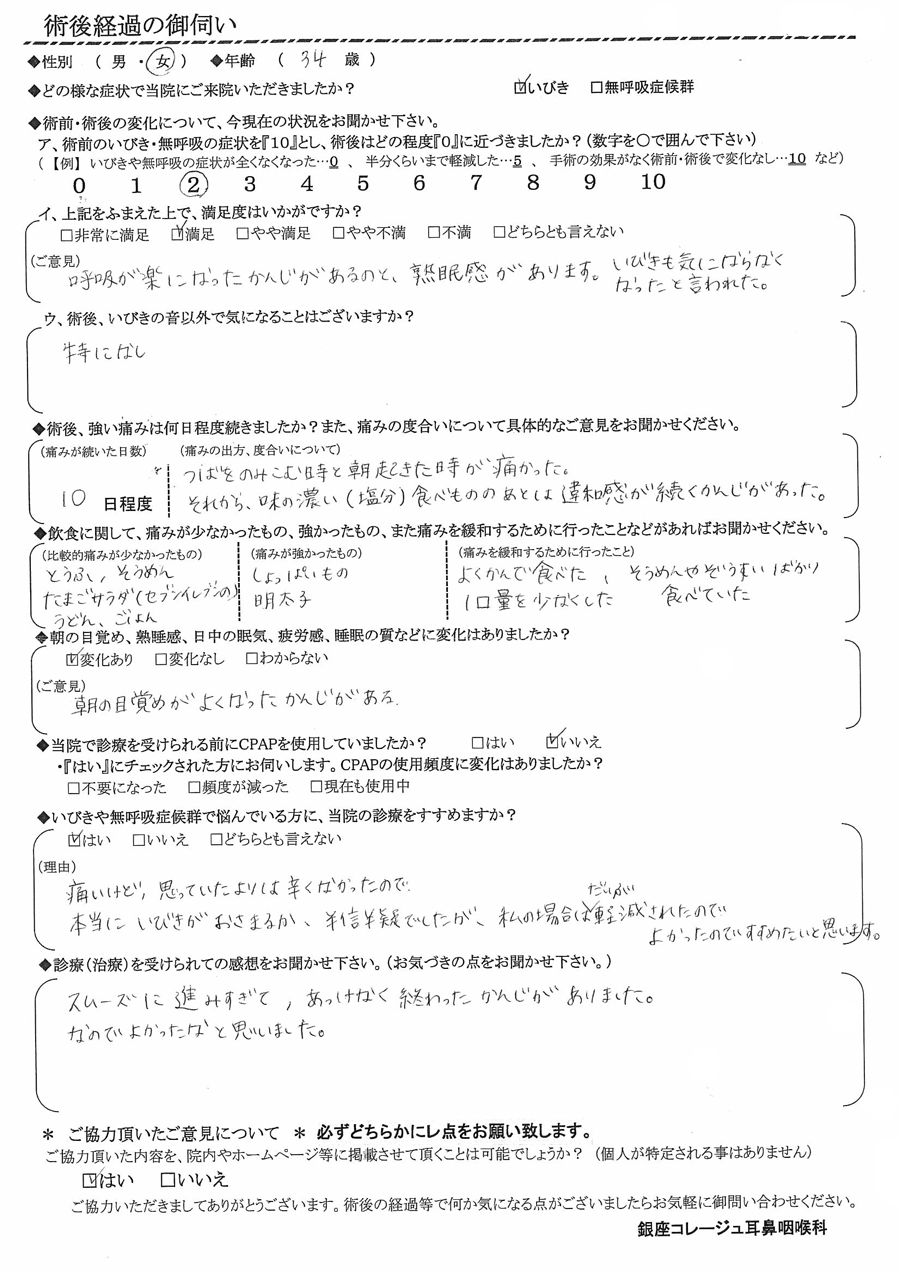 術後経過の御伺い
◆性別 ( 男 ・ 女 ) ◆年齢 ( 34 歳 )
◆どの様な症状で当院にご来院いただきましたか? ☑いびき □無呼吸症候群
◆術前・術後の変化について、今現在の状況をお聞かせ下さい。
ア、術前のいびき・無呼吸の症状を『10』とし、術後はどの程度『0』に近づきましたか?(数字を〇で囲んで下さい)
(【例】いびきや無呼吸の症状が全くなくなった…0 、 半分くらいまで軽減した…5 、 手術の効果がなく術前・術後で変化なし…10 など)
0 1 2 3 4 5 6 7 8 9 10
イ、上記をふまえた上で、満足度はいかがですか?
□非常に満足 ☑満足 □やや満足 □やや不満 □不満 □どちらとも言えない
(ご意見)
呼吸が楽になったかんじがあるのと、熟眠感があります。いびきも気にならなく
なったと言われた。
ウ、術後、いびきの音以外で気になることはございますか?
特になし
◆術後、強い痛みは何日程度続きましたか?また、痛みの度合いについて具体的なご意見をお聞かせください。
(痛みが続いた日数) (痛みの出方、度合いについて)
つばをのみこむ時と朝起きた時が痛かった。
10 日程度 それから、味の濃い(塩分)食べもののあとは違和感が続くかんじがあった。
◆飲食に関して、痛みが少なかったもの、強かったもの、また痛みを緩和するために行ったことなどがあればお聞かせください。
(比較的痛みが少なかったもの) (痛みが強かったもの) (痛みを緩和するために行ったこと)
とうふ, そうめん しょっぱいもの よくかんで食べた , そうめんやぞうすいばかり
たまごサラダ(セブンイレブンの) 明太子 1口量を少なくした 食べていた
うどん、ごはん
◆朝の目覚め、熟睡感、日中の眠気、疲労感、睡眠の質などに変化はありましたか?
☑変化あり □変化なし □わからない
(ご意見)
朝の目覚めがよくなったかんじがある.
◆当院で診療を受けられる前にCPAPを使用していましたか? □はい ☑いいえ
・『はい』にチェックされた方にお伺いします。CPAPの使用頻度に変化はありましたか?
□不要になった □頻度が減った □現在も使用中
◆いびきや無呼吸症候群で悩んでいる方に、当院の診療をすすめますか?
☑はい □いいえ □どちらとも言えない
(理由)
痛いけど, 思っていたよりは辛くなかったので.
だいぶ
本当にいびきがおさまるか、半信半疑でしたが、私の場合は軽減されたので
よかったのですすめたいと思います。
◆診療(治療)を受けられての感想をお聞かせ下さい。(お気づきの点をお聞かせ下さい。)
スムーズに進みすぎて, あっけなく終わったかんじがありました。
なのでよかったなと思いました。
* ご協力頂いたご意見について * 必ずどちらかにレ点をお願い致します。
ご協力頂いた内容を、院内やホームページ等に掲載させて頂くことは可能でしょうか? (個人が特定される事はありません)
☑はい □いいえ
ご協力いただきましてありがとうございます。術後の経過等で何か気になる点がございましたらお気軽に御問い合わせください。
銀座コレージュ耳鼻咽喉科